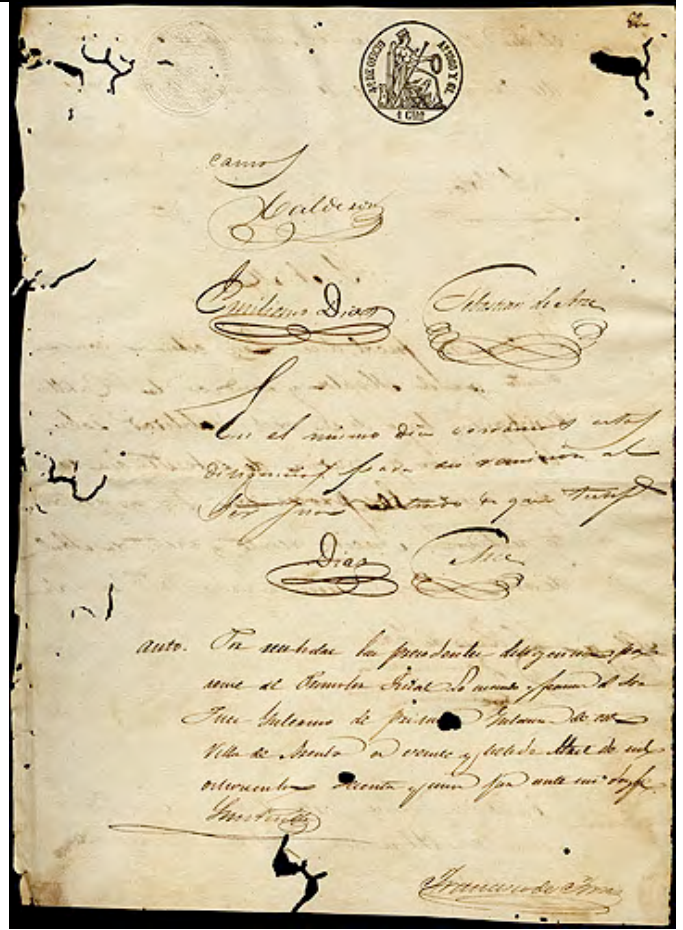 82
Aº DE OFICIO AÑ 1860 Y 61.
camos
Calderon
Emiliano Dias Sebastian de Arce
En el mismo dia cerramos estas
diligencias para su remision al
Sor Juez Letrado de que
Dias Arce
auto. Por recibidas las precedentes diligencias
al Promotor Fiscal Lo mando y firma el Sor
Juez Interino de primera Instancia de esta
Villa de en veinte y siete de de mil
ochocientos sesenta y uno por ante mi doy fe
Francisco de